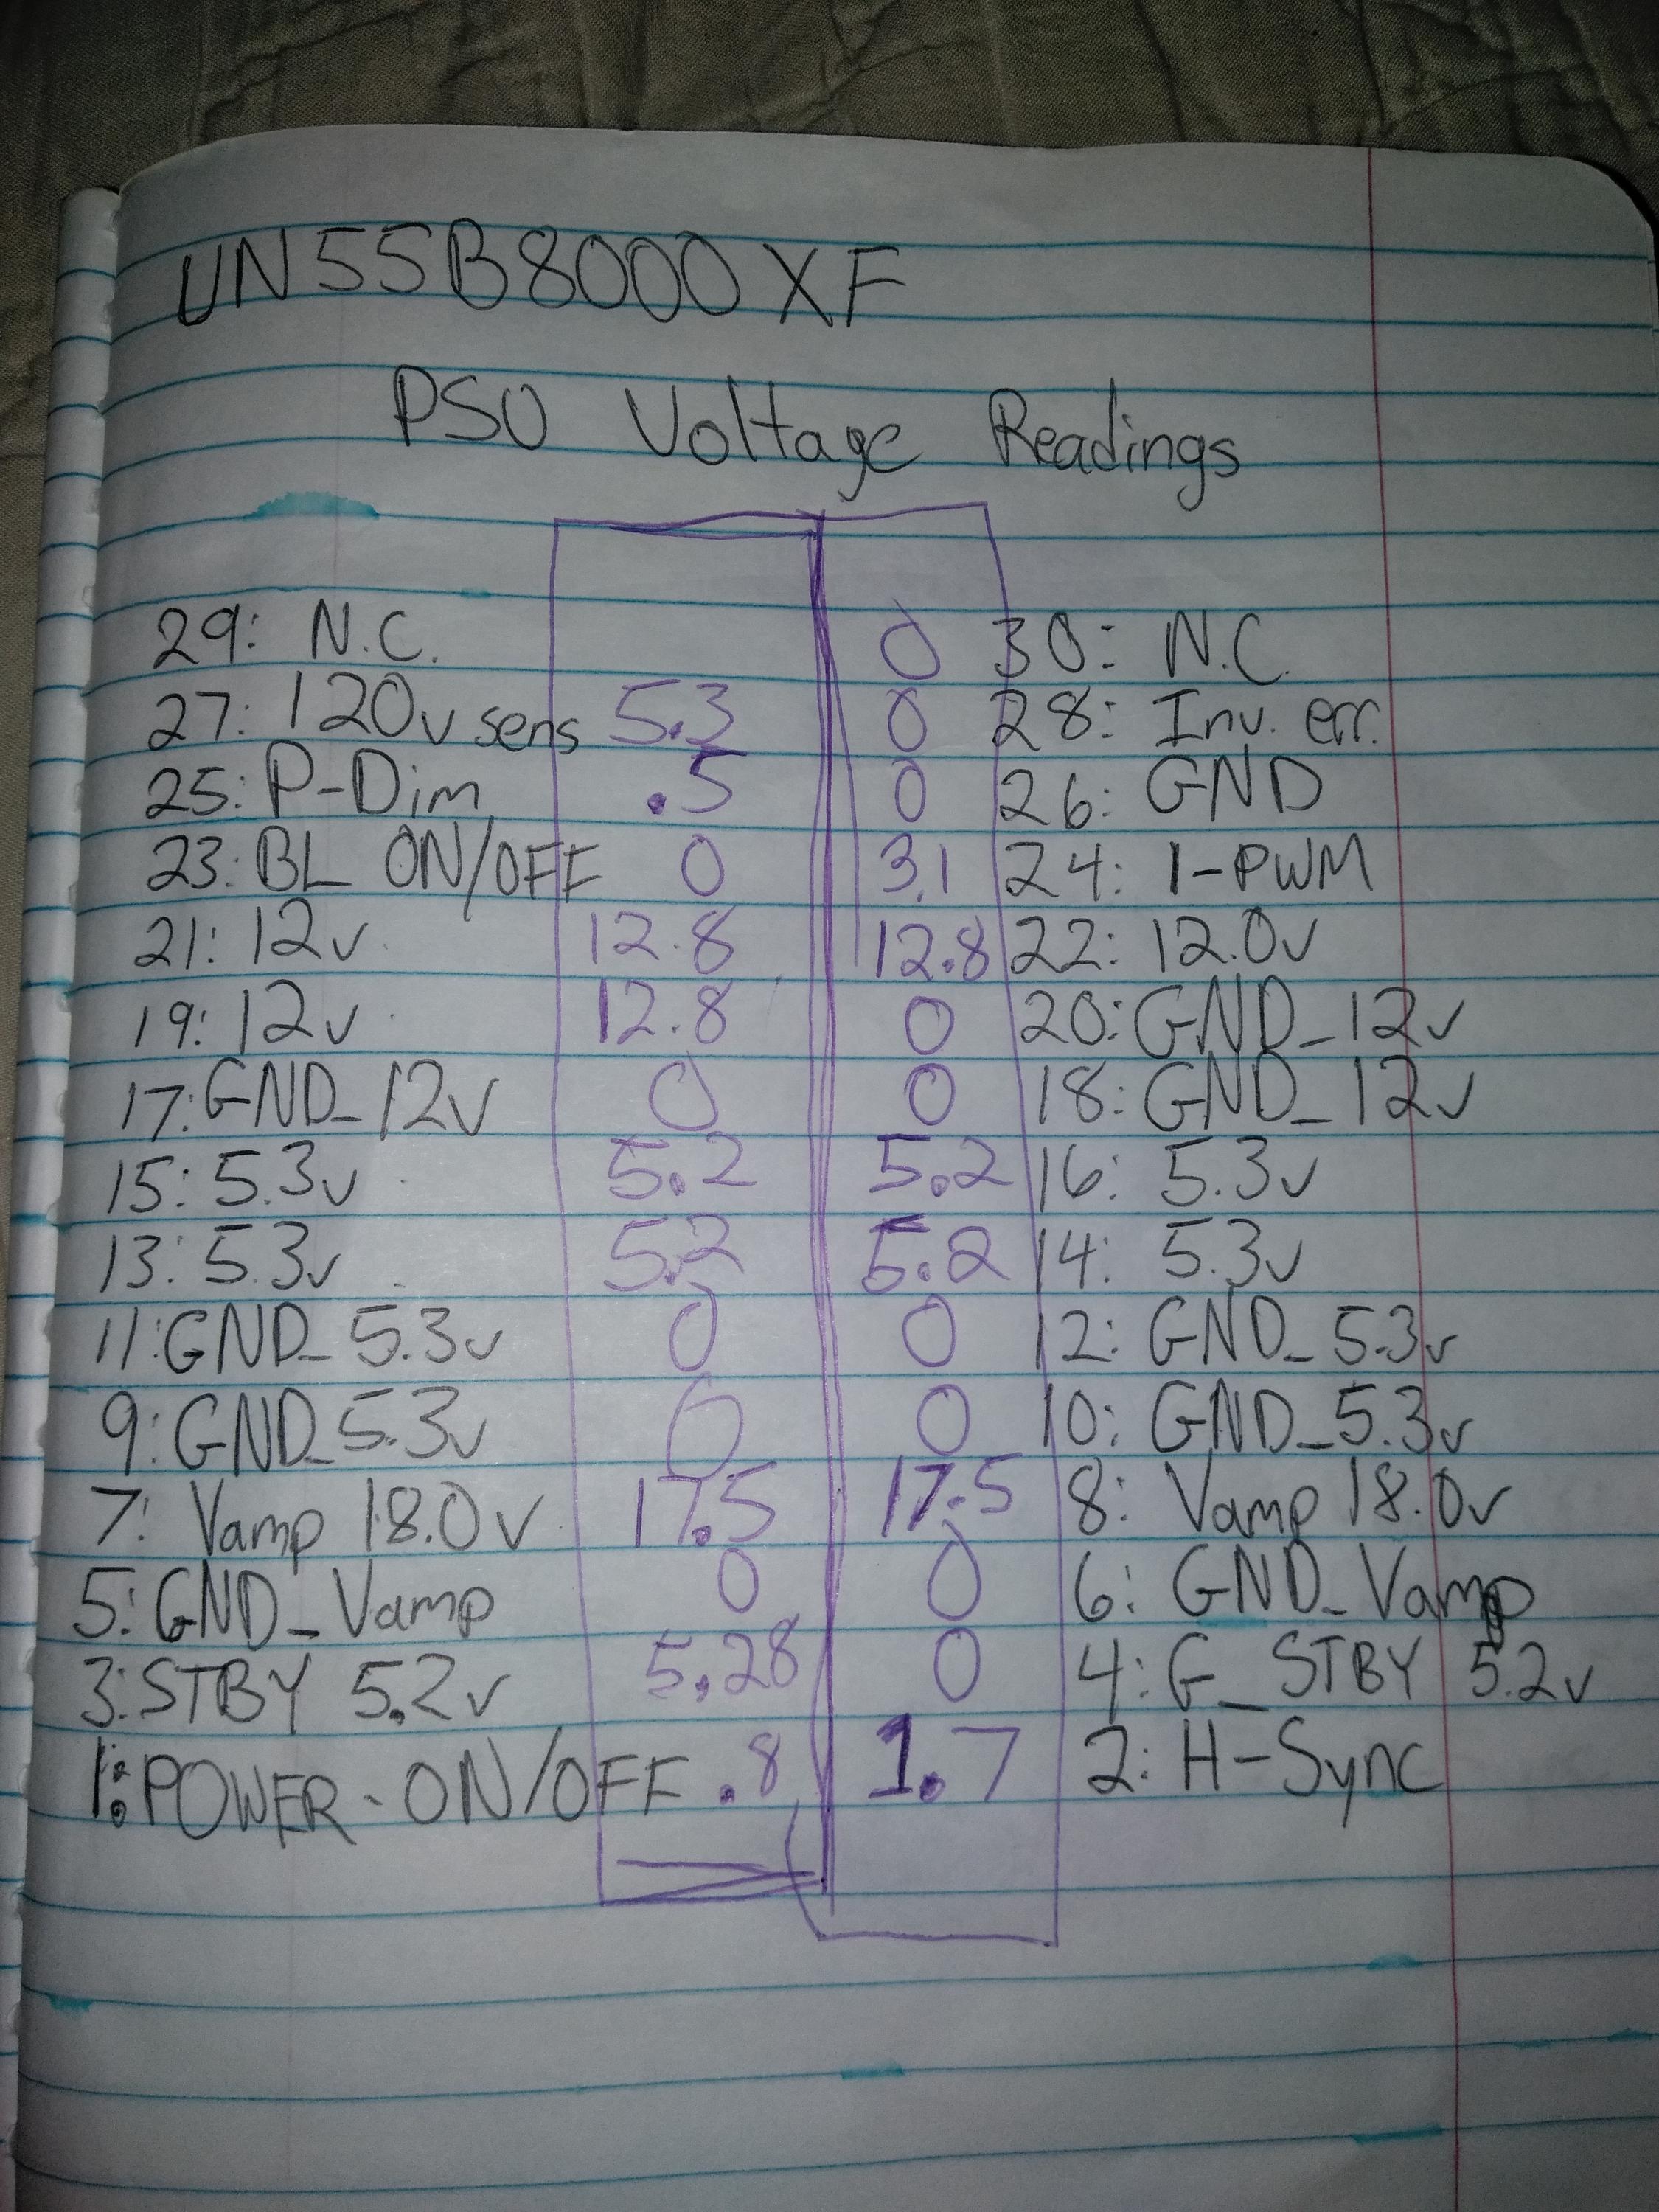 UN55B8000XF
PSU Voltage Readings
29: N.C. 0 30: N.C.
27: 120v sens 5.3 0 28: Inv. err.
25: P-Dim .5 0 26: GND
23: BL ON/OFF 0 3.1 24: I-PWM
21: 12v 12.8 12.8 22: 12.0v
19: 12v 12.8 0 20: GND_12v
17: GND_12v 0 0 18: GND_12v
15: 5.3v 5.2 5.2 16: 5.3v
13: 5.3v 5.2 5.2 14: 5.3v
11: GND_5.3v 0 0 12: GND_5.3v
9: GND_5.3v 0 0 10: GND_5.3v
7: Vamp 18.0v 17.5 17.5 8: Vamp 18.0v
5: GND_Vamp 0 0 6: GND_Vamp
3: STBY 5.2v 5.28 0 4: G_STBY 5.2v
1: POWER-ON/OFF .8 1.7 2: H-Sync